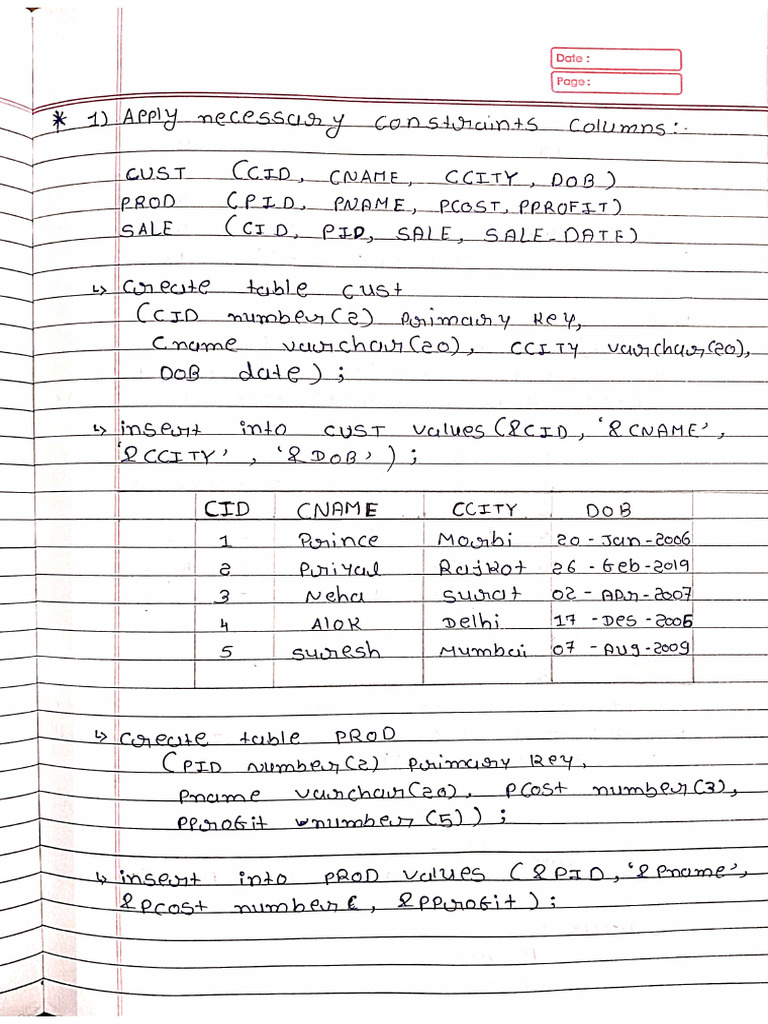 Date :
Page :
* 1) Apply necessary constraints columns:-
CUST (CCID, CNAME, CCITY, DOB)
PROD (PID, PNAME, PCOST, PPROFIT)
SALE (CID, PID, SALE, SALE-DATE)
↳ Create table cust
(CID number(2) primary key,
Cname varchar(20), CCITY varchar(20),
DOB date);
↳ insert into CUST values(&CID, '&CNAME',
'&CCITY', '&DOB');
CID CNAME CCITY DOB
1 Prince Morbi 20-Jan-2006
2 Priyal Rajkot 26-Feb-2019
3 Neha Surat 02-Apr-2007
4 Alok Delhi 17-Des-2005
5 Suresh Mumbai 07-Aug-2009
↳ create table PROD
(PID number(2) primary key,
pname varchar(20), pcost number(3),
pprofit number(5));
↳ insert into PROD values (&PID, '&pname',
&pcost number, &pprofit);